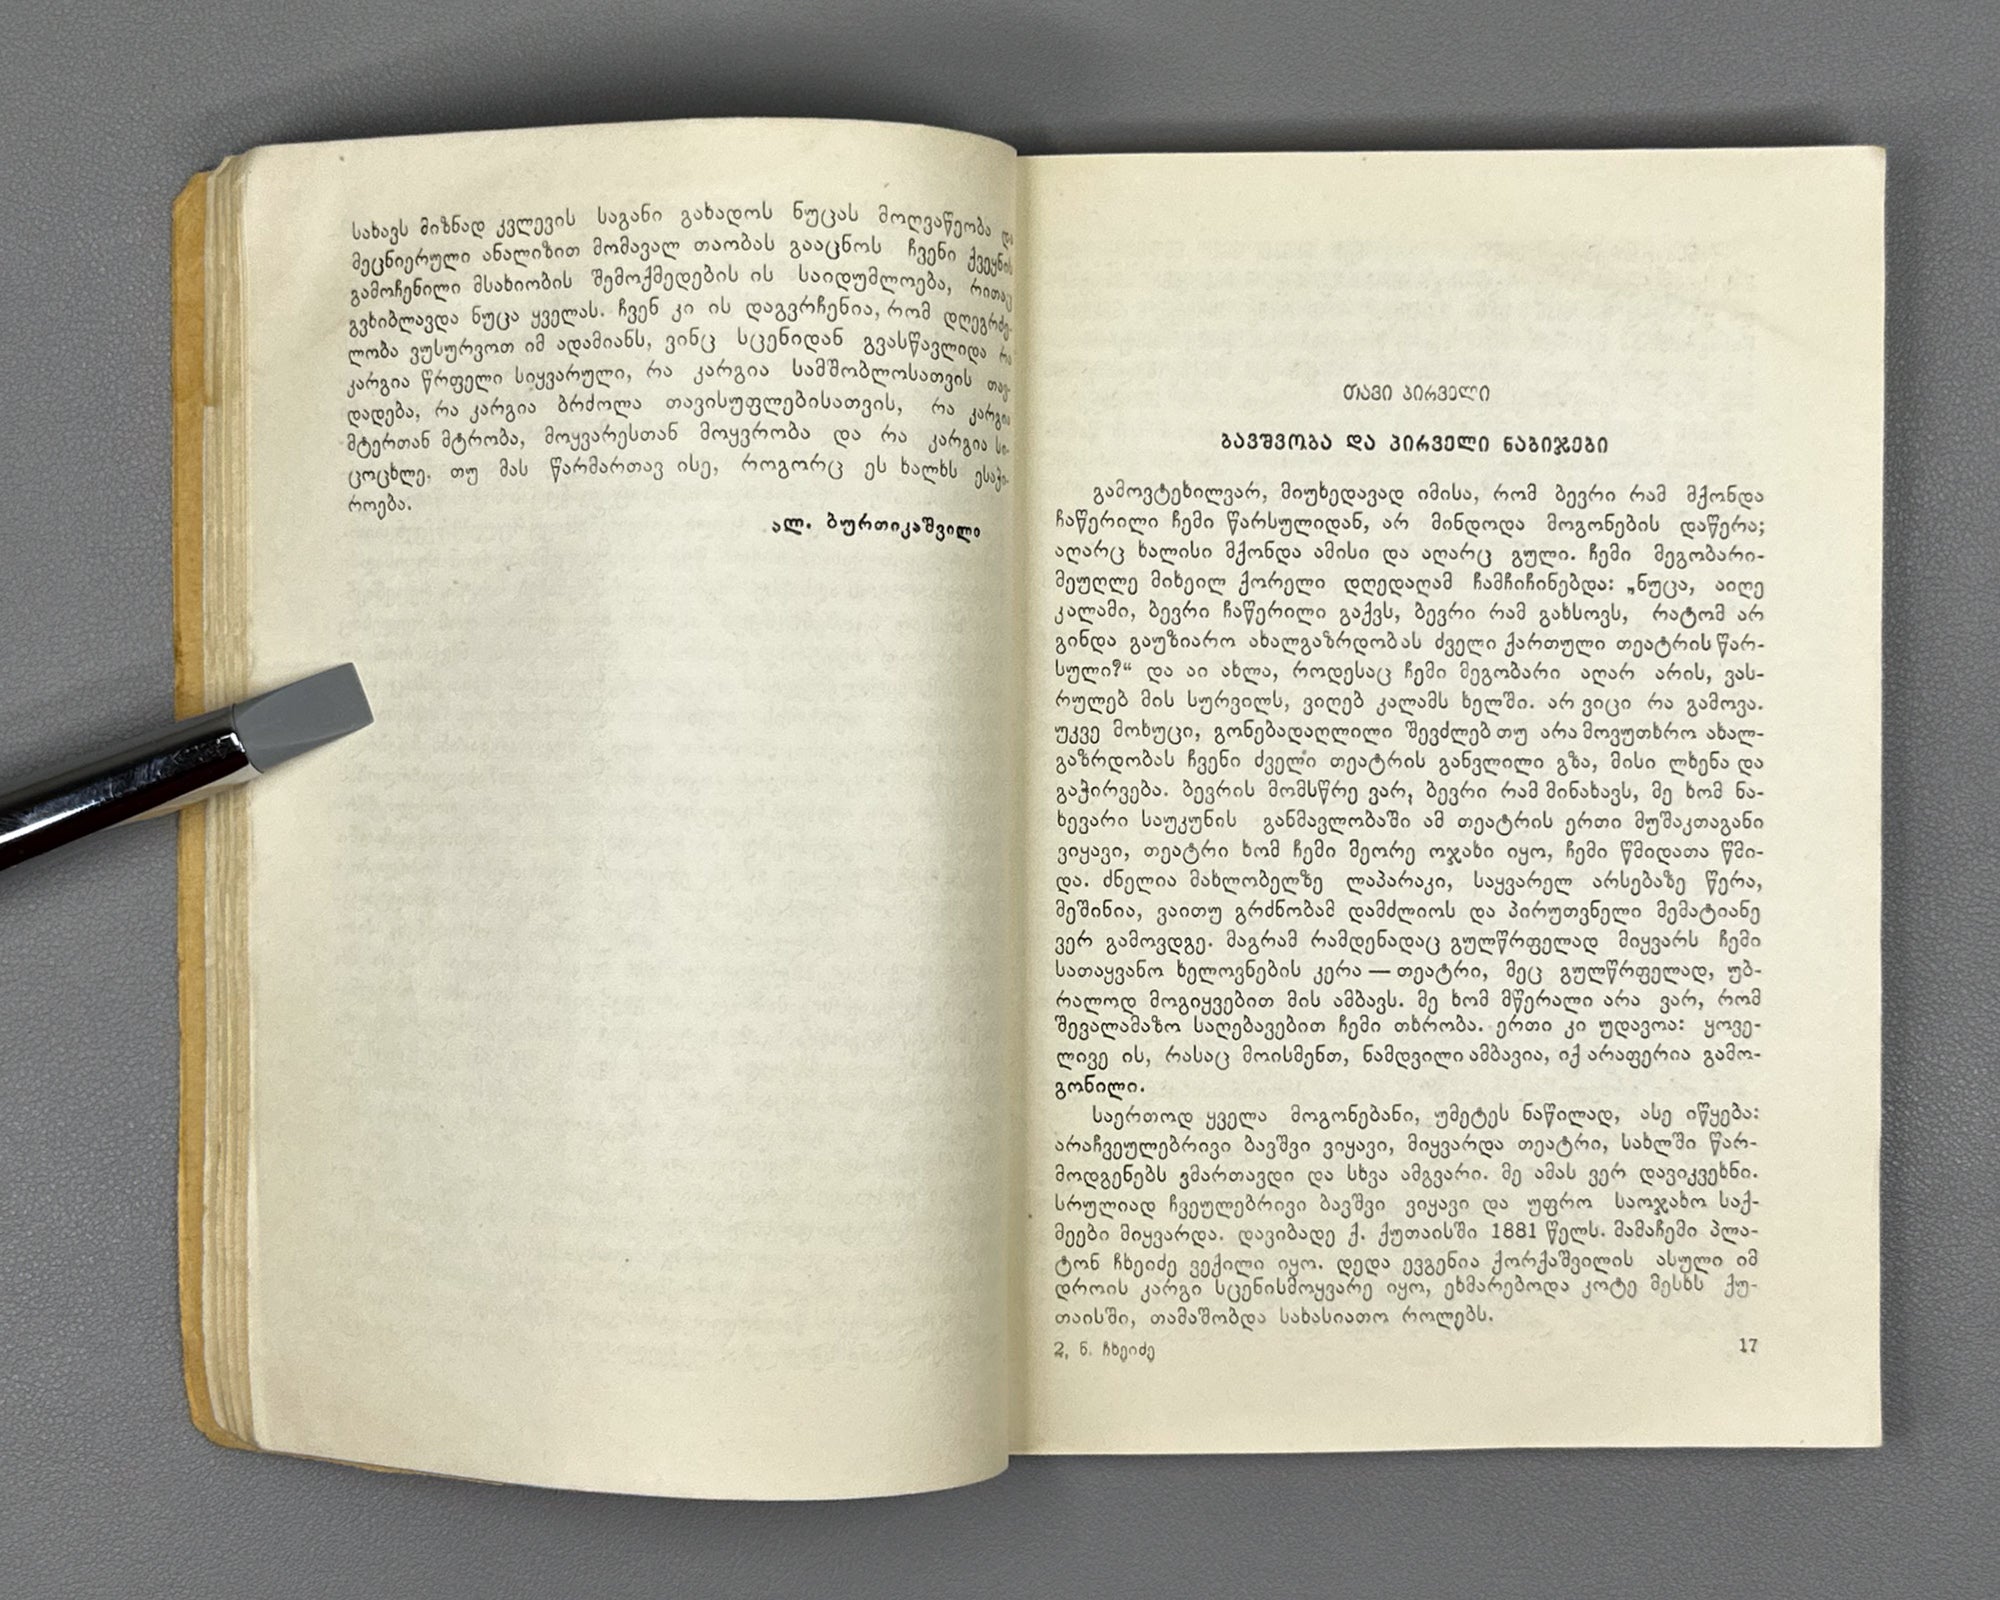 სახავს მიზნად კვლევის საგანი გახადოს ნუცას მოღვაწეობა და
მეცნიერული ანალიზით მომავალ თაობას გააცნოს ჩვენი ქვეყნის
გამოჩენილი მსახიობის შემოქმედების ის საიდუმლოება, რითაც
გვხიბლავდა ნუცა ყველას. ჩვენ კი ის დაგვრჩენია, რომ დღეგრძე-
ლობა ვუსურვოთ იმ ადამიანს, ვინც სცენიდან გვასწავლიდა რა
კარგია წრფელი სიყვარული, რა კარგია სამშობლოსათვის თავ-
დადება, რა კარგია ბრძოლა თავისუფლებისათვის, რა კარგია
მტერთან მტრობა, მოყვარესთან მოყვრობა და რა კარგია სი-
ცოცხლე, თუ მას წარმართავ ისე, როგორც ეს ხალხს ესაჭი-
როება.
ალ. ბურთიკაშვილი
თავი პირველი
ბავშვობა და პირველი ნაბიჯები
გამოვტეხილვარ, მიუხედავად იმისა, რომ ბევრი რამ მქონდა
ჩაწერილი ჩემი წარსულიდან, არ მინდოდა მოგონების დაწერა;
აღარც ხალისი მქონდა ამისი და აღარც გული. ჩემი მეგობარი-
მეუღლე მიხეილ ქორელი დღედაღამ ჩამჩიჩინებდა: „ნუცა, აიღე
კალამი, ბევრი ჩაწერილი გაქვს, ბევრი რამ გახსოვს, რატომ არ
გინდა გაუზიარო ახალგაზრდობას ძველი ქართული თეატრის წარ-
სული?“ და აი ახლა, როდესაც ჩემი მეგობარი აღარ არის, ვას-
რულებ მის სურვილს, ვიღებ კალამს ხელში. არ ვიცი რა გამოვა.
უკვე მოხუცი, გონებადაღლილი შევძლებ თუ არა მოვუთხრო ახალ-
გაზრდობას ჩვენი ძველი თეატრის განვლილი გზა, მისი ლხენა და
გაჭირვება. ბევრის მომსწრე ვარ, ბევრი რამ მინახავს, მე ხომ ნა-
ხევარი საუკუნის განმავლობაში ამ თეატრის ერთი მუშაკთაგანი
ვიყავი, თეატრი ხომ ჩემი მეორე ოჯახი იყო, ჩემი წმიდათა წმი-
და. ძნელია მახლობელზე ლაპარაკი, საყვარელ არსებაზე წერა,
მეშინია, ვაითუ გრძნობამ დამძლიოს და პირუთვნელი მემატიანე
ვერ გამოვდგე. მაგრამ რამდენადაც გულწრფელად მიყვარს ჩემი
სათაყვანო ხელოვნების კერა — თეატრი, მეც გულწრფელად, უბ-
რალოდ მოგიყვებით მის ამბავს. მე ხომ მწერალი არა ვარ, რომ
შევალამაზო საღებავებით ჩემი თხრობა. ერთი კი უდავოა: ყოვე-
ლივე ის, რასაც მოისმენთ, ნამდვილი ამბავია, იქ არაფერია გამო-
გონილი.
საერთოდ ყველა მოგონებანი, უმეტეს ნაწილად, ასე იწყება:
არაჩვეულებრივი ბავშვი ვიყავი, მიყვარდა თეატრი, სახლში წარ-
მოდგენებს ვმართავდი და სხვა ამგვარი. მე ამას ვერ დავიკვეხნი.
სრულიად ჩვეულებრივი ბავშვი ვიყავი და უფრო საოჯახო საქ-
მეები მიყვარდა. დავიბადე ქ. ქუთაისში 1881 წელს. მამაჩემი პლა-
ტონ ჩხეიძე ვექილი იყო. დედა ევგენია ქორქაშვილის ასული იმ
დროის კარგი სცენისმოყვარე იყო, ეხმარებოდა კოტე მესხს ქუ-
თაისში, თამაშობდა სახასიათო როლებს.
2, ნ. ჩხეიძე
17